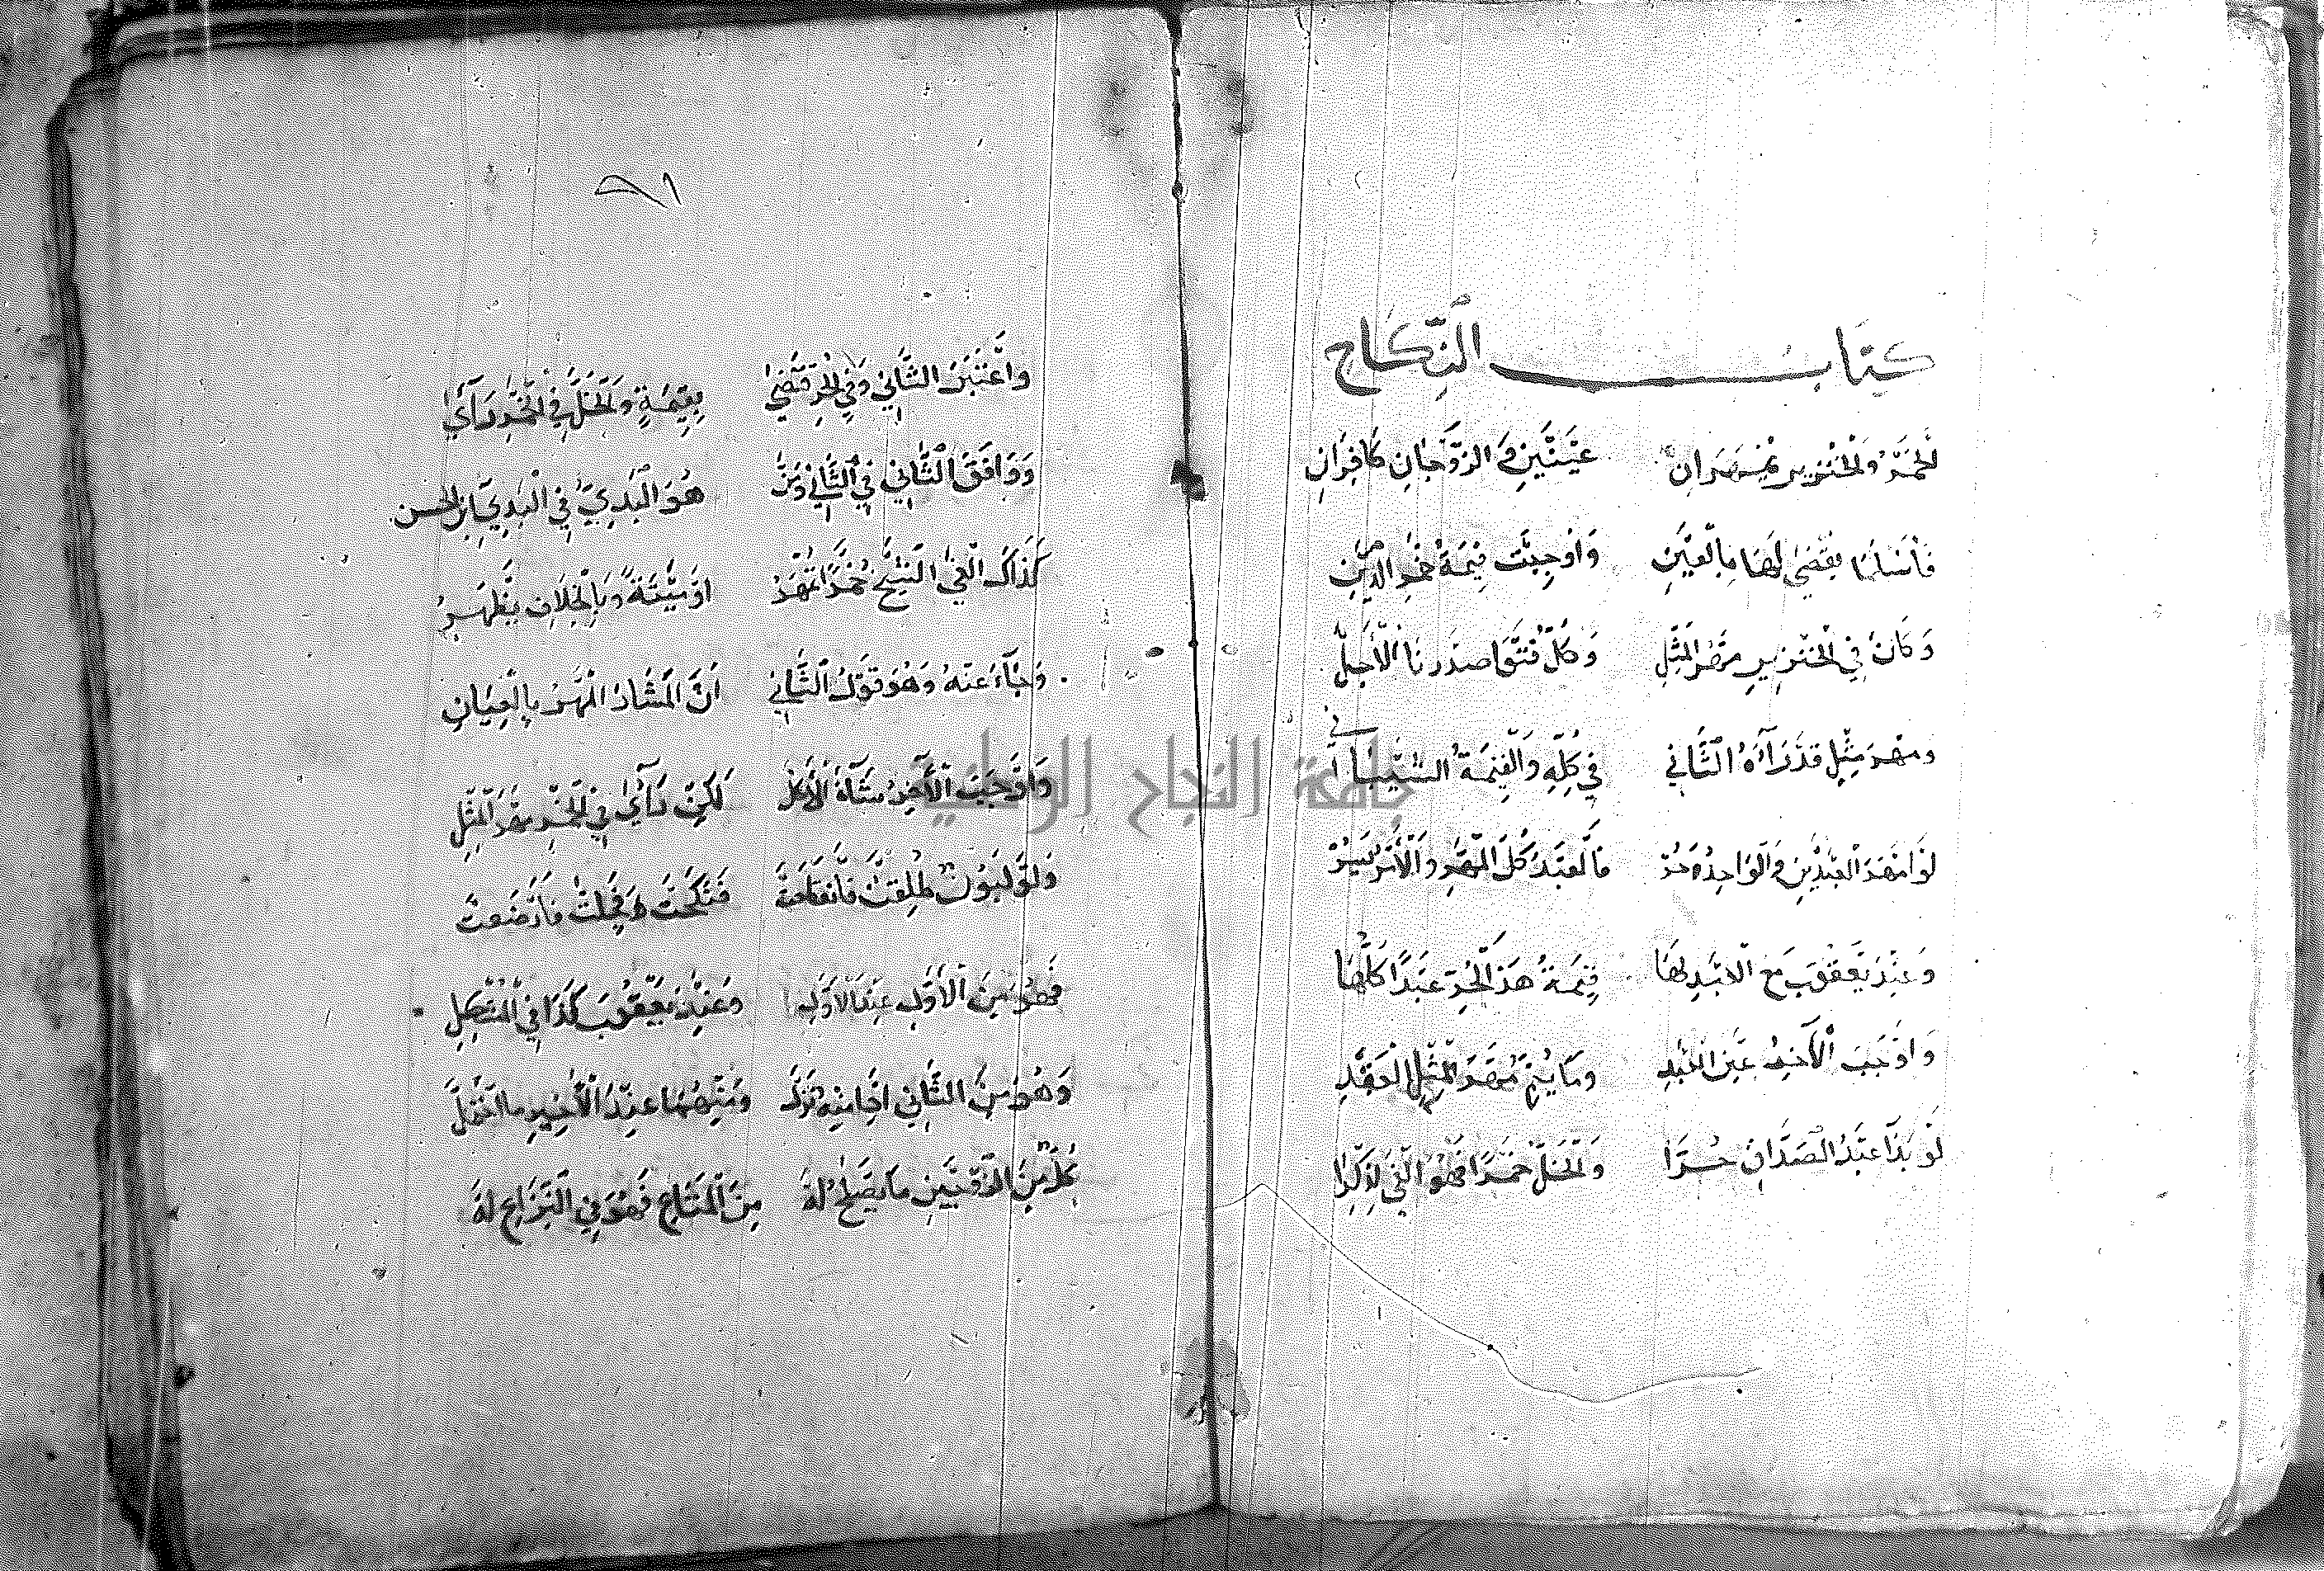 كتاب النِّكاح
الخمر والخنزير يمهران عينين والزوجان كافران
فأسلما يقضى لها بالعين وأوجبت قيمة خمر الدين
وكان في الخنزير مهر المثل وكل فتوى صدرنا الأجل
ومهر مثل قد رآه الثاني في كله والقيمة الشيباني
لو امهر العبدين والواحد حر فالعبد كل المهر والأمر يسر
وعند يعقوب مع العبد لها قيمة هذا الحر عبدا كلها
وأوجب الآخر عين العبد وما يتم مهر المثل العقد
لو بدا عبد الصداق حرا والخل خمرا فهو الذي ذكرا
٩١
واعتبر الثاني وفي الحر قضى بقيمة والخل في الخمر رأى
ووافق الثاني في الثاني ومن هو البدي في البدي ابن الحسن
كذلك الفتى الشيخ خمرا تمهر او ميتة وبالخلاف يظهر
وجاء عنه وهو قول الثاني أن المشار المهر بالعيان
وأوجب الآخر شاة الأكل لكن رأى في الخمر مهر المثل
ولو لبون طلقت فانقطعت فنكحت وحملت فأرضعت
فهو من الأول عند الأول وعند يعقوب كذا في المشكل
وهو من الثاني اذا منه نزل ومنهما عند الأخير ما انفصل
كل من الزوجين ما يصلح له من المتاع فهو في النزاع له
جامعة النجاح الوطنية